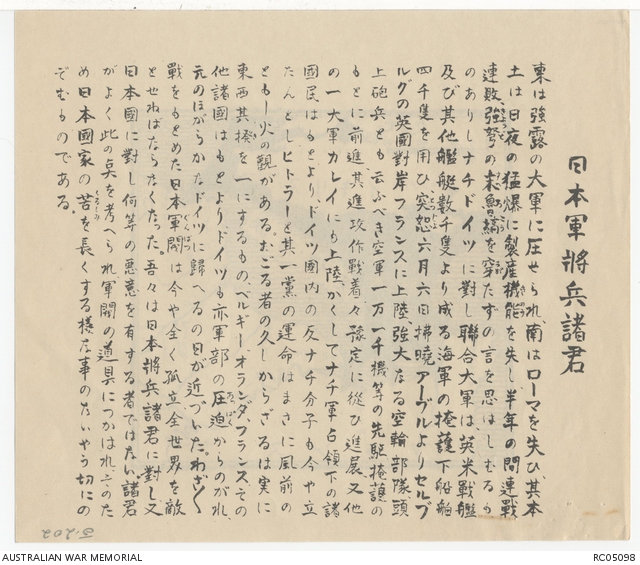 日本軍將兵諸君
東は強露の大軍に圧せられ、南はローマを失ひ其本
土は日夜の猛爆に製産機能を失し半年の間連戰
連敗、強弩の末魯縞を穿たずの言を思はしむるも
のありしナチドイツに對し聯合大軍は英米戰艦
及び其他艦艇数千隻より成る海軍の掩護下船舶
四千隻を用ひ突如六月六日拂曉アーブルよりセルブ
ルグの英國對岸フランスに上陸強大なる空輸部隊頭
上砲兵とも云ふべき空軍一万一千機等の先駆掩護の
もとに前進其進攻作戰着々豫定に從ひ進展又他
の一大軍カレイにも上陸かくしてナチ軍占領下の諸
國民はもとより、ドイツ國内の反ナチ分子も今や立
たんとしヒトラーと其一黨の運命はまさに風前の
ともし火の観がある。おごる者の久しからざるは実に
東西其揆を一にするもの、ベルギー、オランダ、フランスその
他諸國はもとよりドイツも亦軍部の圧迫からのがれ、
元のほがらかなドイツに歸へるの日が近づいた。わざ〱
戰をもとめた日本軍閥は今や全く孤立全世界を敵
とせねばならなくなった。吾々は日本將兵諸君に對し又
日本國に對し何等の悪意を有する者ではない諸君
がよく此の点を考へられ軍閥の道具につかはれ、そのた
め日本國家の苦を長くする様な事のないやう切にの
ぞむものである。
J-202
AUSTRALIAN WAR MEMORIAL
RC05098